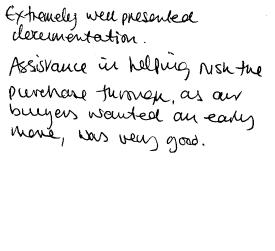 Extremely well presented
documentation.
Assistance in helping rush the
purchase through, as our
buyers wanted an early
move, was very good.